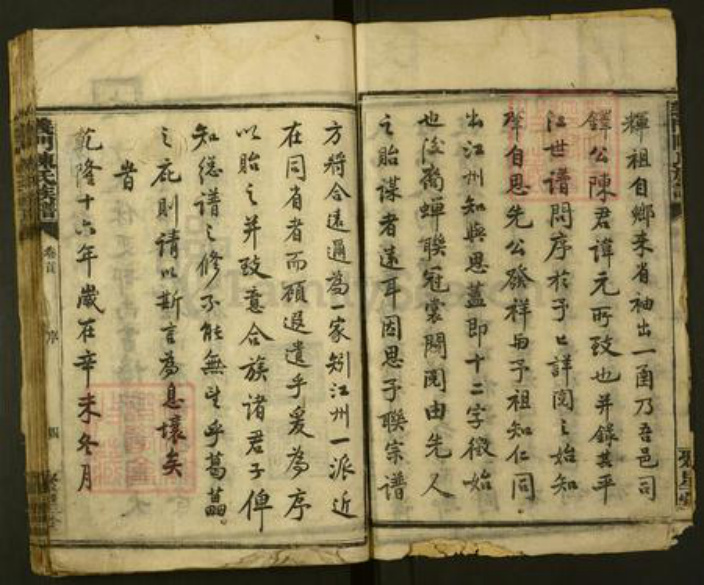 輝祖自鄉来省袖出一函乃吾邑司
鐸公陳君諱元所致也并錄其平
江世譜問序於予予詳閱之始知
擇自思先公發祥與予祖知仁同
出江州知與思蓋即十二字徵始
也後裔蟬聯冠裳閥閱由先人
之貽謀者遠耳因思予聯宗譜
方將合遠邇為一家矧江州一派近
在同省者而顧遐遺乎爰為序
以貽之并致意合族諸君子俾
知總譜之修不能無望乎葛藟
之庇則請以斯言為息壤矣
旹
乾隆十六年歲在辛未冬月
義門陳氏族譜
卷首
序